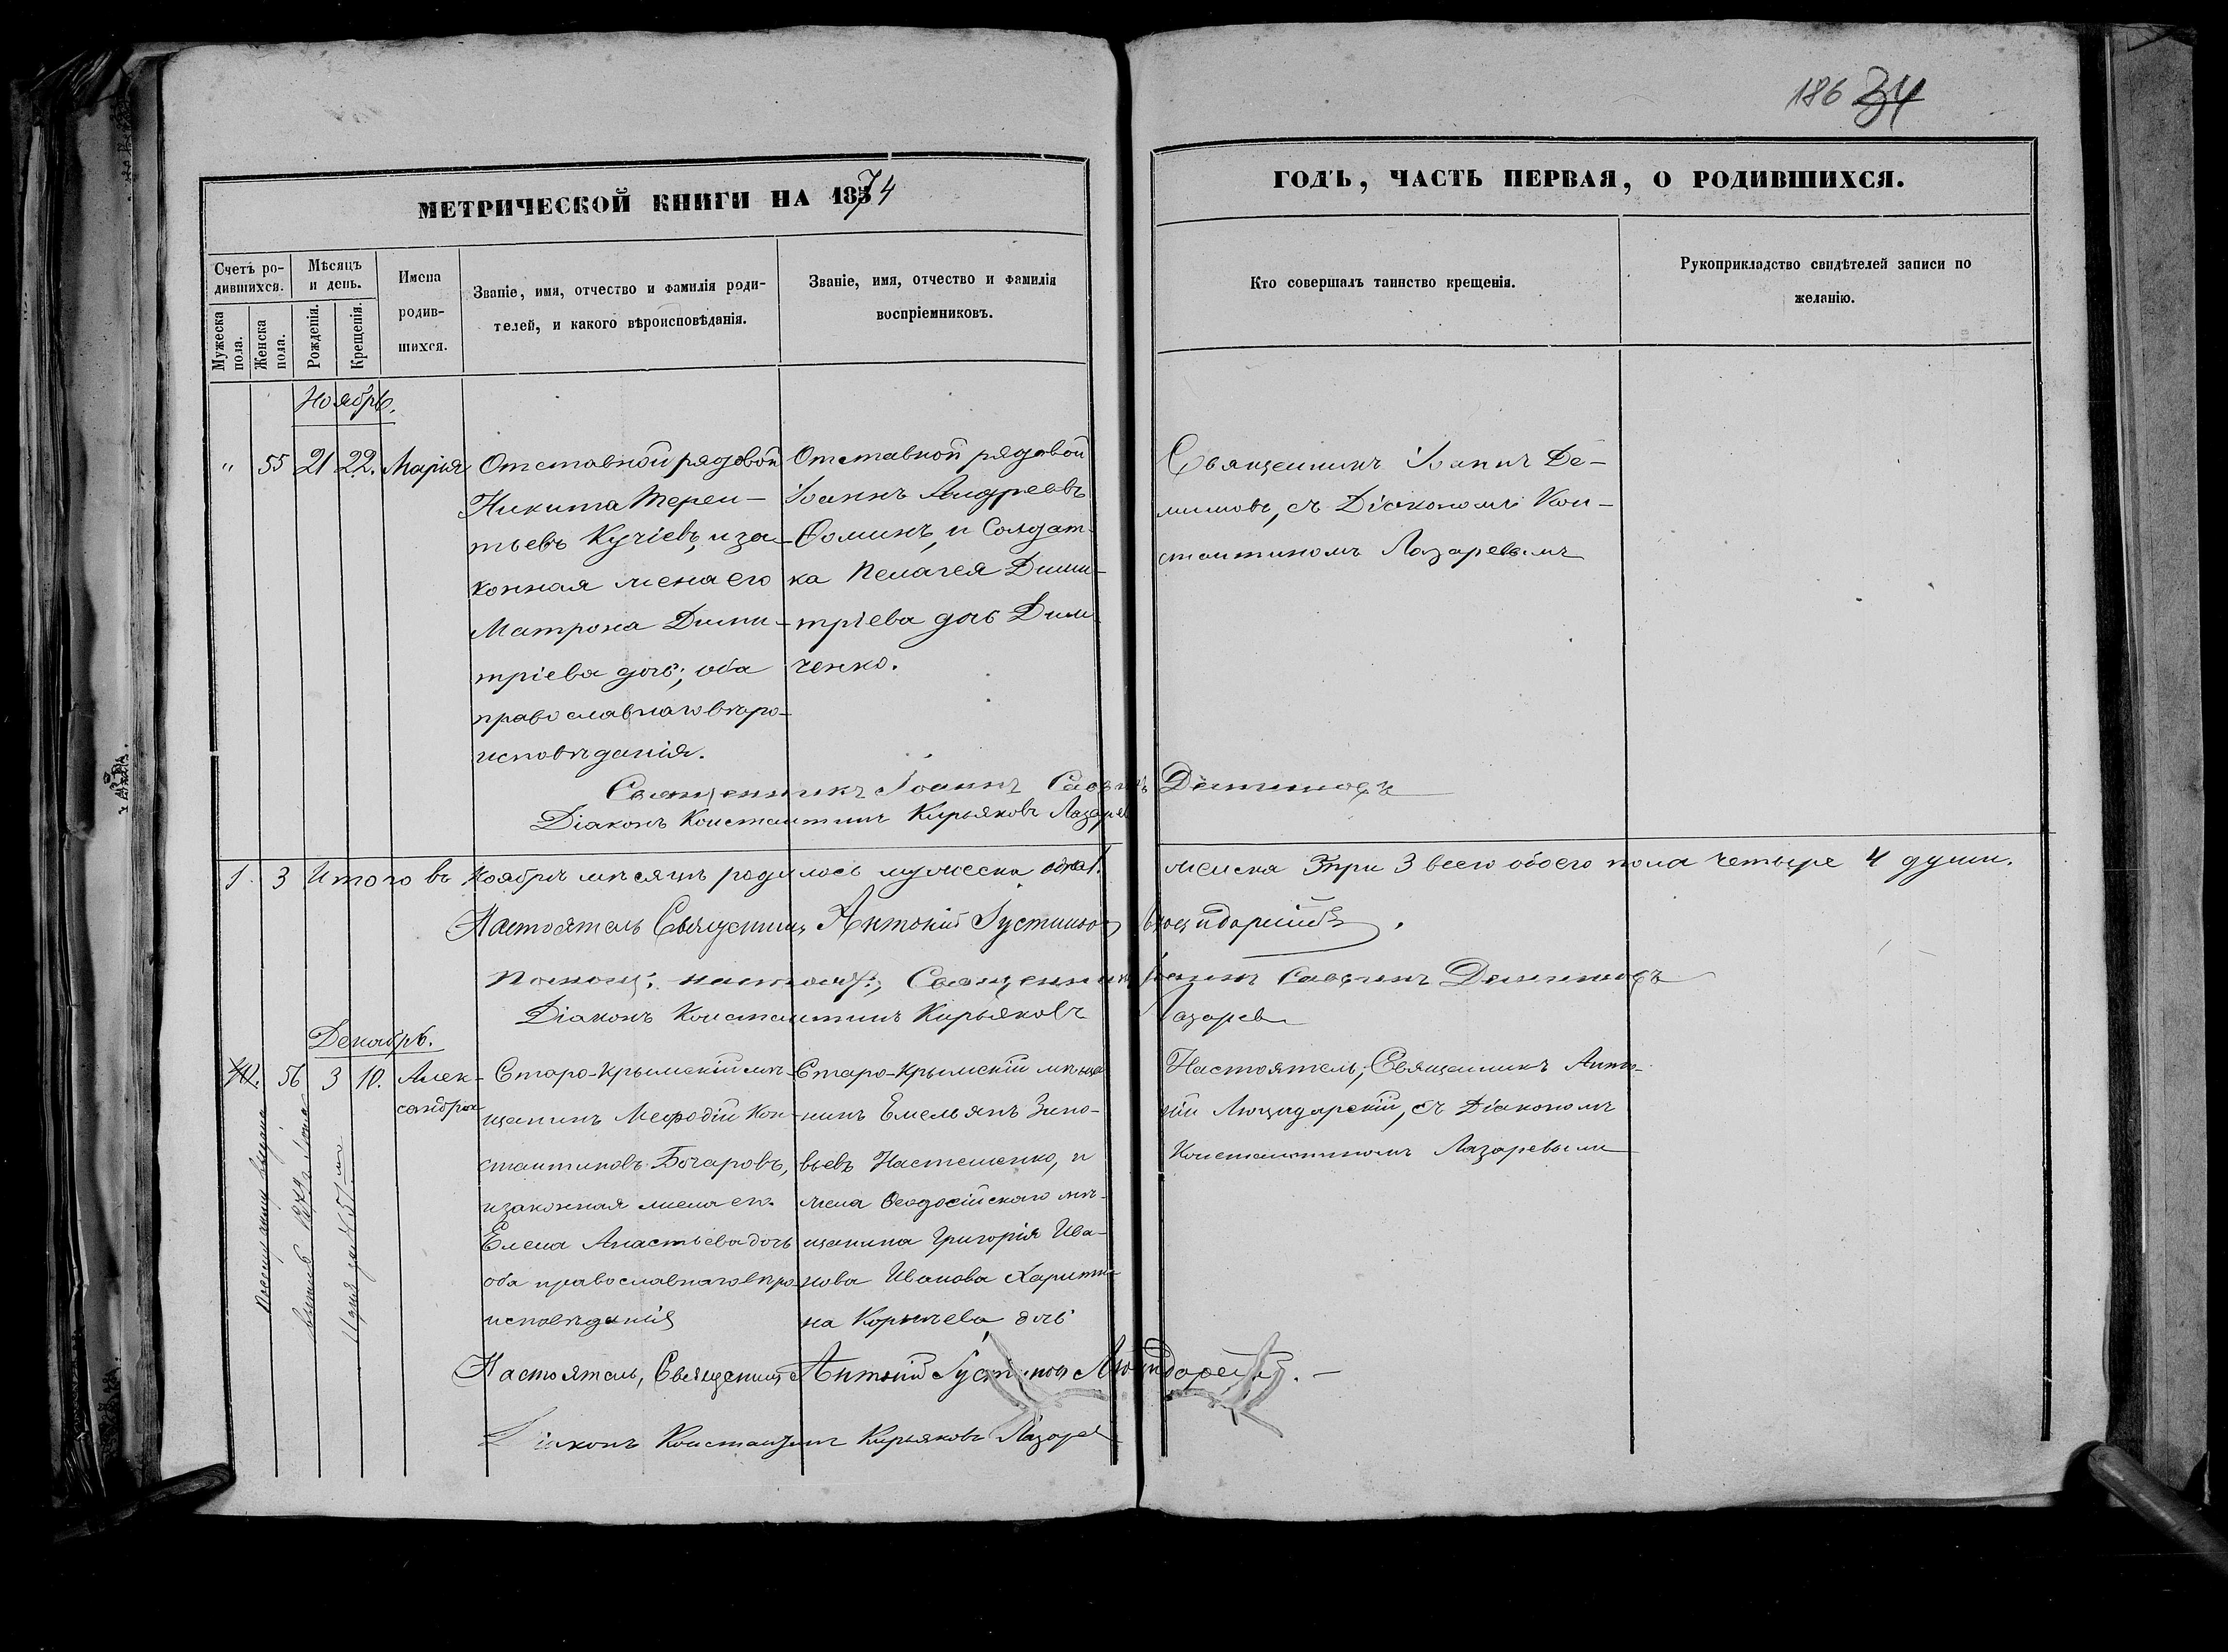 186 34
МЕТРИЧЕСКОЙ КНИГИ НА 1874
ГОДЪ, ЧАСТЬ ПЕРВАЯ, О РОДИВШИХСЯ.
Счетъ ро-
дившихся.
Мужеска
пола.
Женска
пола.
Мѣсяцъ
и день.
Рожденія.
Крещенія.
Имена
родив-
шихся.
Званіе, имя, отчество и фамилія роди-
телей, и какого вѣроисповѣданія.
Званіе, имя, отчество и фамилія
воспріемниковъ.
Кто совершалъ таинство крещенія.
Рукоприкладство свидѣтелей записи по
желанію.
Ноябрь.
" 55 21 22. Марія
Отставной рядовой
Никита Терен-
тьевъ Кучіевъ, и за-
конная жена его
Матрона Дими-
тріева дочь; оба
православнаго вѣро-
исповѣданія.
Отставной рядовой
Іоаннъ Андреевъ
Ѳоминъ, и Солдат-
ка Пелагея Дими-
тріева дочь Дим-
ченко.
Священникъ Іоаннъ Де-
мишовъ, съ Діакономъ Кон-
стантиномъ Лазаревымъ
Священникъ Іоаннъ
Діаконъ Константинъ Кирьяковъ Лазарев
1. 3 Итого въ Ноябрѣ мѣсяцѣ родилось мужеска одна 1. женска три 3 всего обоего пола четыре 4 души.
Настоятель Священникъ Антоній Іустиновъ
Помощ: настоят:, Священникъ Іоаннъ
Діаконъ Константинъ Кирьяковъ Лазарев
Декабрь.
40. 56 3 10. Алек-
сандра
Старо-Крымскій мѣ-
щанинъ Меѳодій Кон-
стантиновъ Бочаровъ,
и законная жена его
Елена Анастьева дочь
оба православнаго вѣро-
исповѣданія
Старо-Крымскій мѣща
нинъ Емельянъ Зино-
вьевъ Настешенко, и
жена Ѳеодосійскаго мѣ-
щанина Григорія Ива-
нова Иванова Харити-
на Корнѣева дочь
Настоятель, Священникъ Анто-
ній Люцидарскій, съ Діакономъ
Константиномъ Лазаревымъ
Настоятель, Священникъ Антоній Іустиновъ Люцидарскій.
Діаконъ Константинъ Кирьяковъ Лазарев